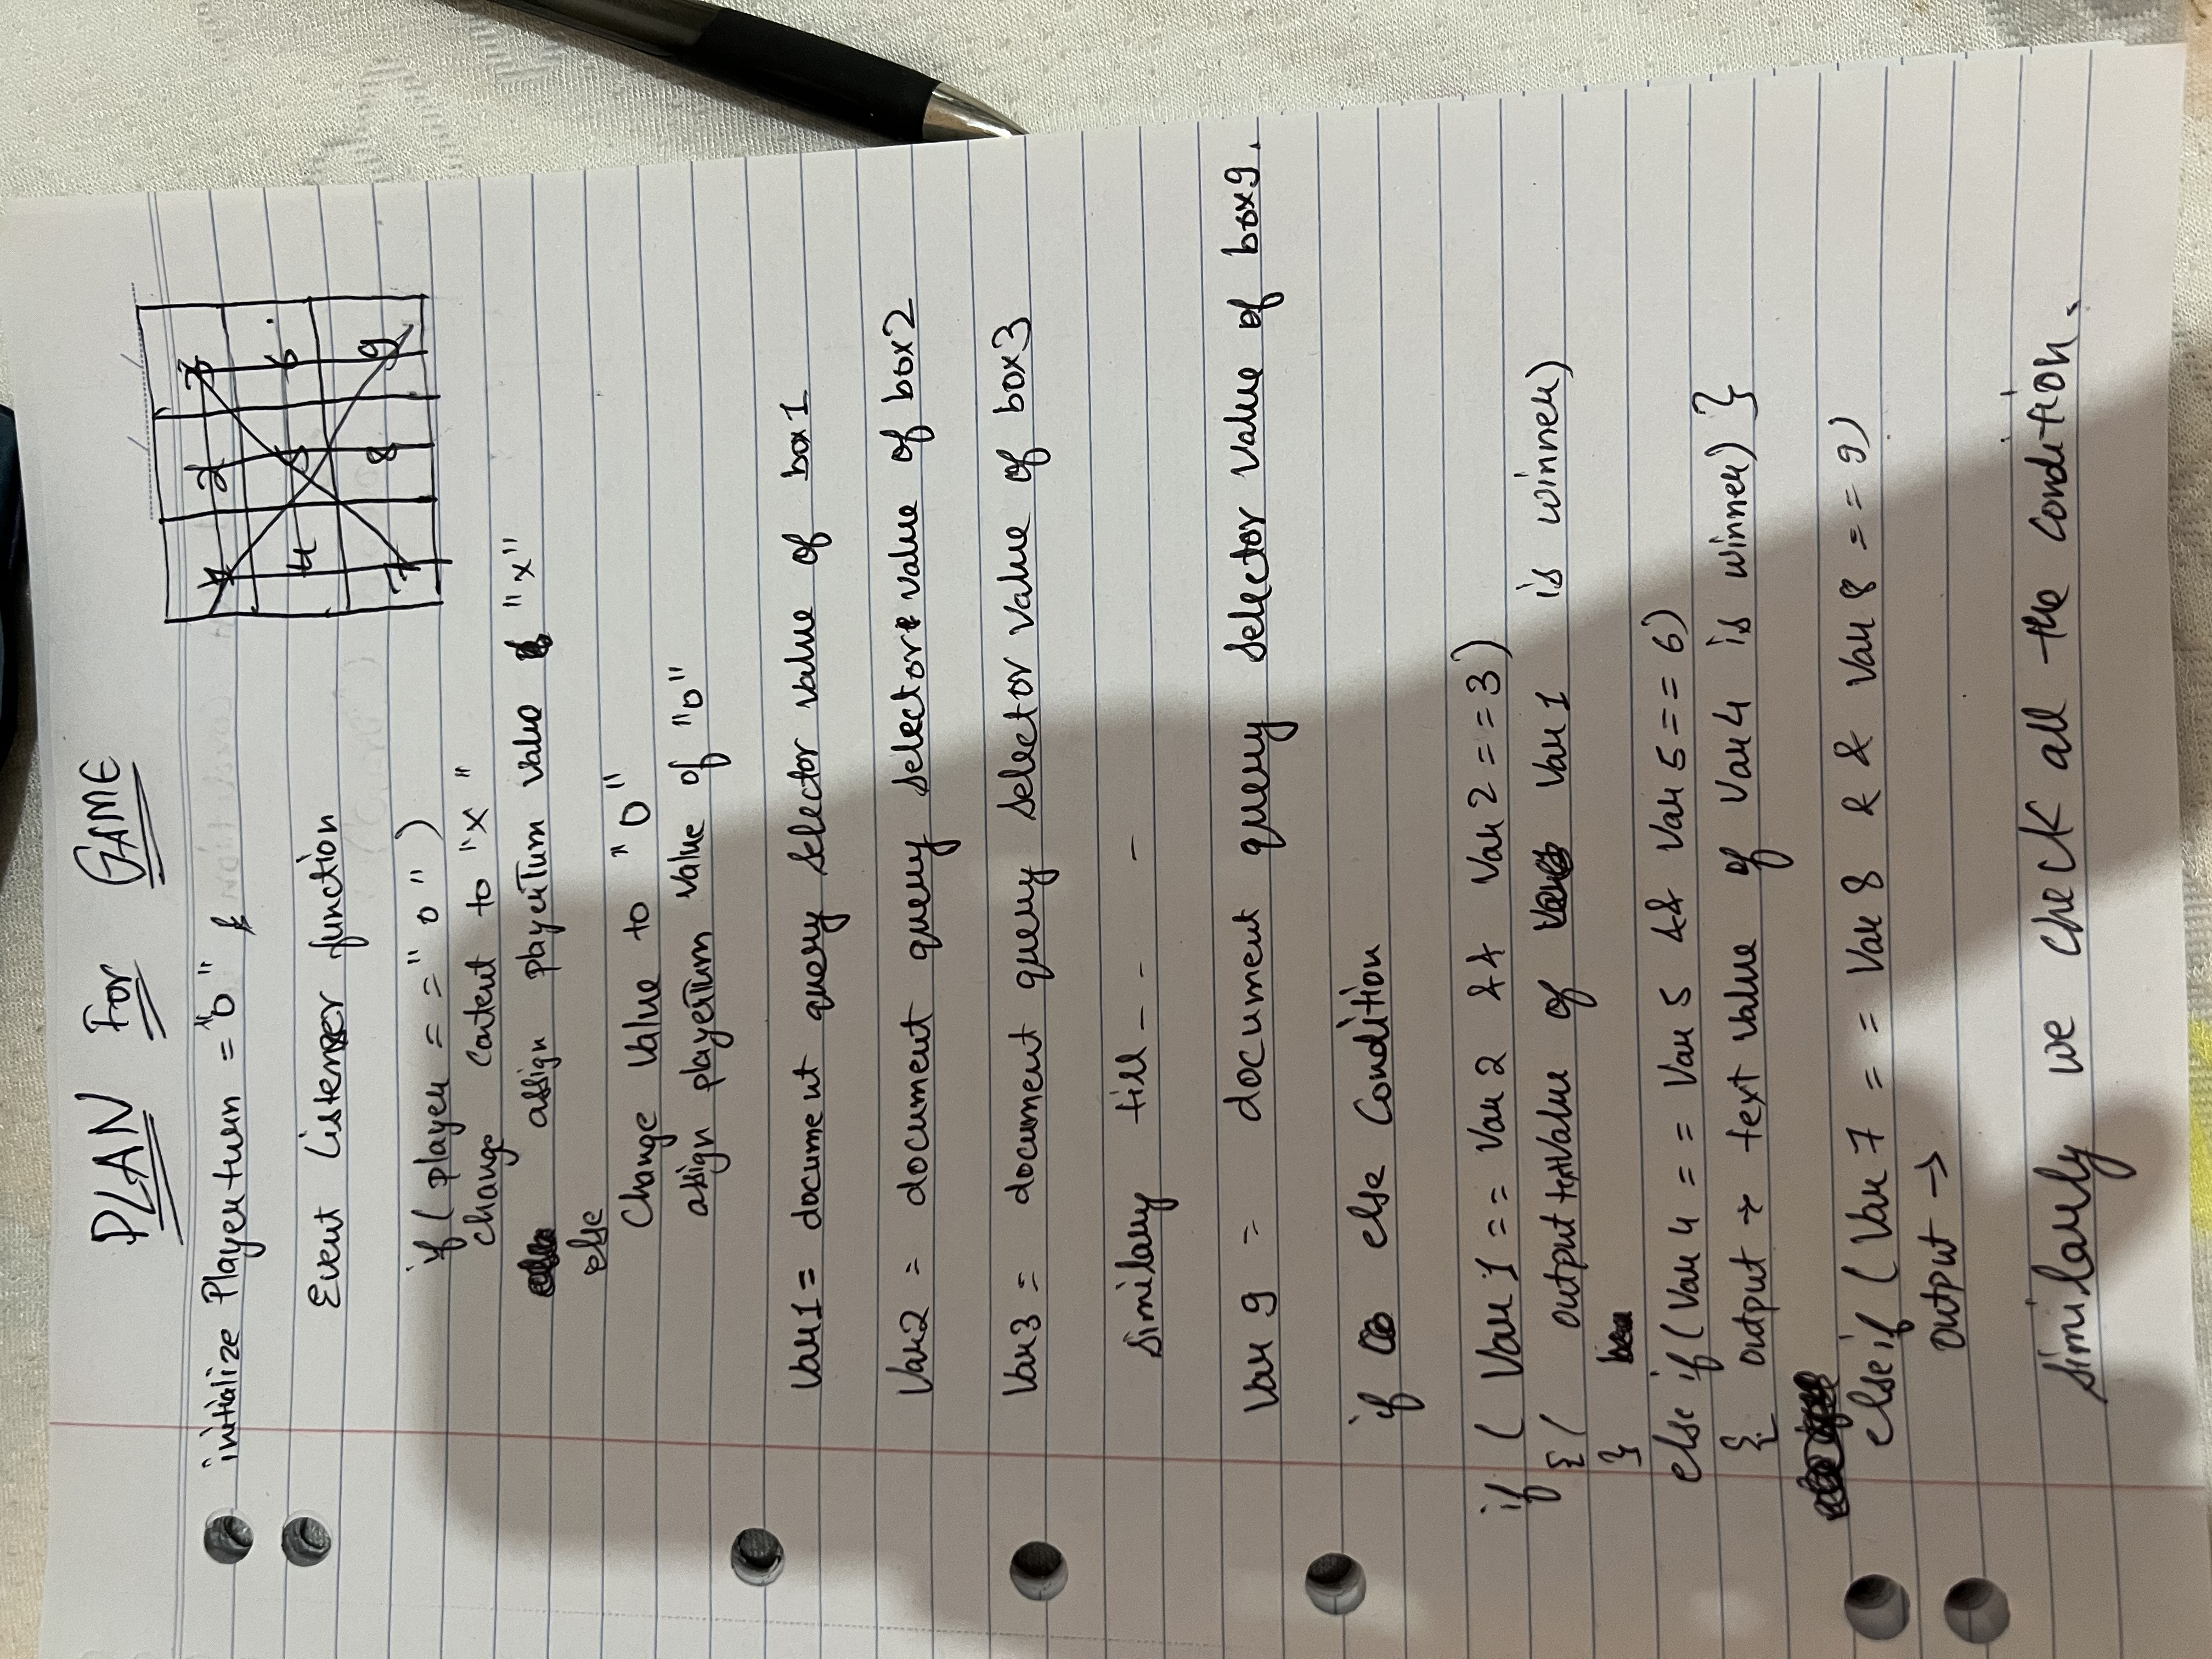 PLAN For GAME
initialize Playerturn = "0"
1 2 3
4 5 6
7 8 9
Event Listener function
if ( player = = " 0 " )
change content to "x"
assign playerTurn value "x"
else
Change Value to "0"
assign playerTurn value of "0"
Var1 = document query selector value of box1
Var2 = document query selector value of box2
Var3 = document query selector value of box3
Similary till - - -
Var 9 = document query selector value of box9.
if else Condition
if ( Var 1 == Var 2 && Var 2 == 3 )
{ ( output text value of Var 1 is winner)
}
else if ( Var 4 = = Var 5 && Var 5 == 6)
{ output → text value of Var 4 is winner) }
else if ( Var 7 = = Var 8 && Var 8 == 9)
output →
Similarly we check all the condition.